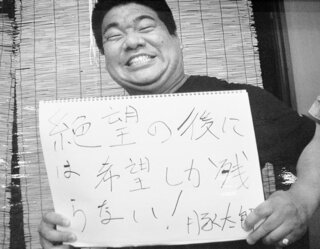 絶望の後に
は希望しか残
らない!
豚太郎